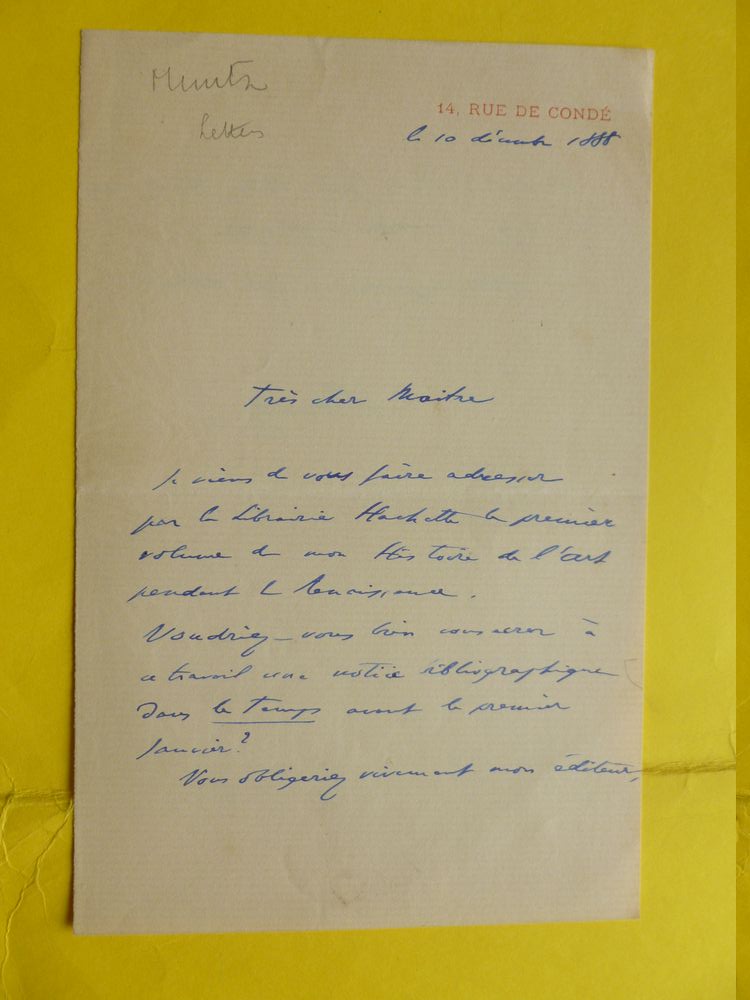 Muntz
Letters
14, RUE DE CONDÉ
le 10 décembre 1888
Très cher Maitre
Je viens de vous faire adresser
par la Librairie Hachette le premier
volume de mon Histoire de l'art
pendant la Renaissance.
Voudriez-vous bien consacrer à
ce travail une notice bibliographique
dans le Temps avant le premier
Janvier?
Vous obligeriez vivement mon éditeur,